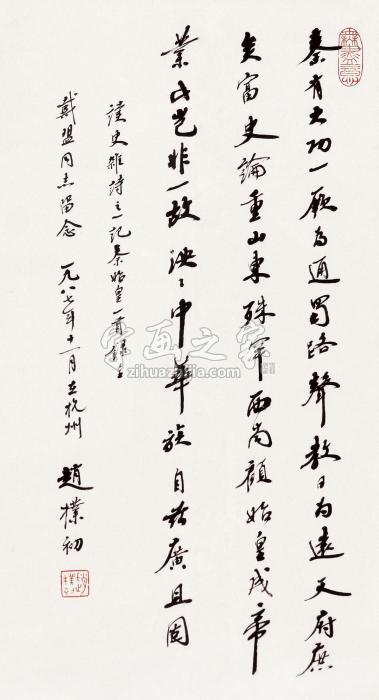 秦有大功一厥为通蜀路聲教日为遠天府庶
矣富史論重山東殊罕西南顧始皇成帝
業此豈非一故泱々中華族自兹廣且固
读史雜詩之一記秦始皇一首録
戴盟同志留念 一九八七年十一月在杭州 趙樸初
字画之家
zihuazhijia.com